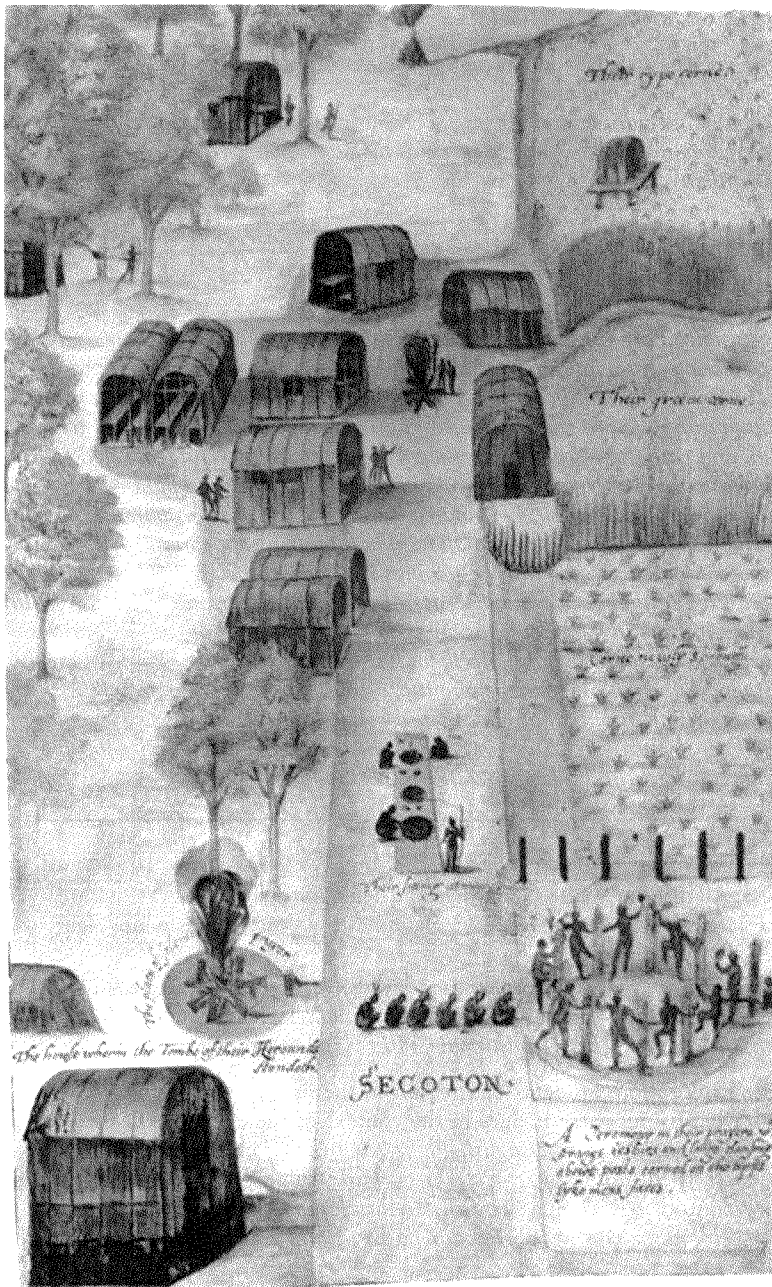 Their rype corne.
Their greene corne.
Corne newly sprong.
Their sitting at meate
The place of solemne prayer.
The house wherin the Tombe of their Herounds
standeth.
SECOTON.
A Ceremony in their prayers w
strange iestures and songs dansing
abowt posts carued on the topps
lyke mens faces.